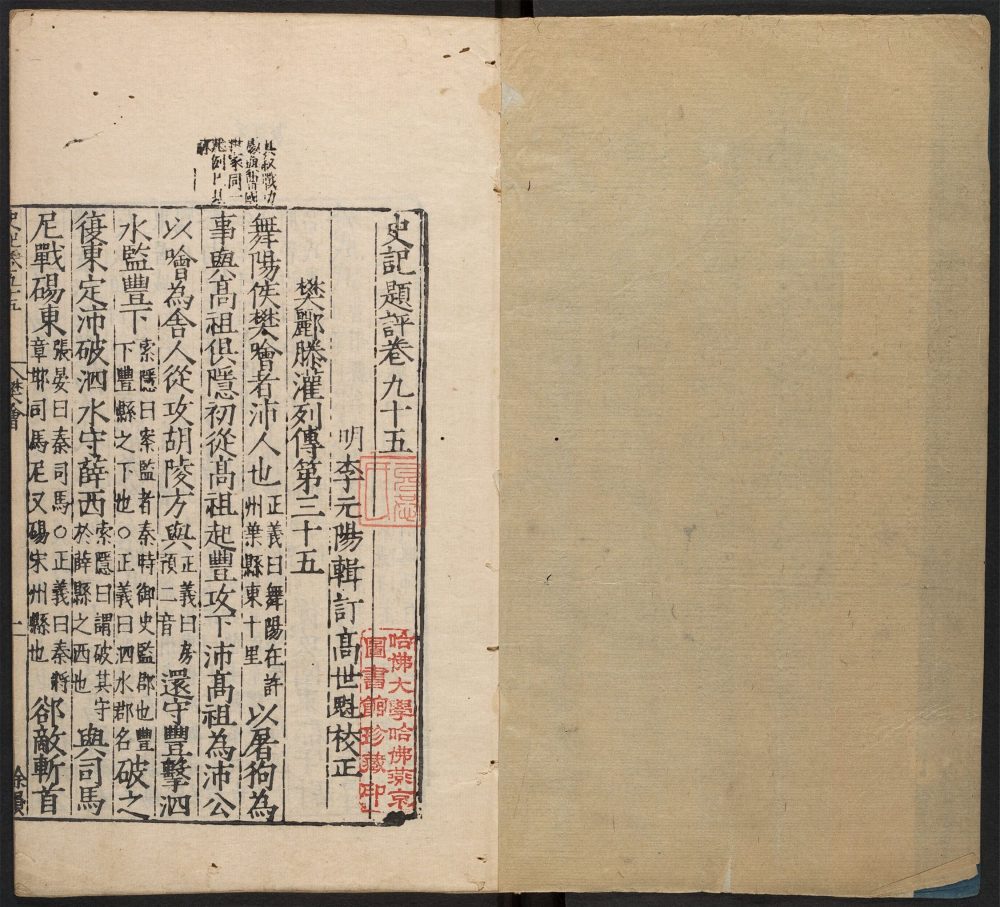 史記題評卷九十五
明 李元陽輯訂 高世魁校正
樊酈滕灌列傳第三十五
舞陽侯樊噲者沛人也 正義曰舞陽在許州葉縣東十里 以屠狗為
事與髙祖俱隱初從髙祖起豐攻下沛髙祖為沛公
以噲為舍人從攻胡陵方與 正義曰房預二音 還守豐擊泗
水監豐下 索隱曰案監者秦時御史監郡也豐下豐縣之下也○正義曰泗水郡名 破之
復東定沛破泗水守薛西 索隱曰謂破其守於薛縣之西也 與司馬
𡰥戰碭東 張晏曰秦司馬○正義曰秦將章邯司馬𡰥又碭宋州縣也 郤敵斬首
史記卷九十五
樊噲
一
哈佛大學哈佛燕京
圖書館珍藏印